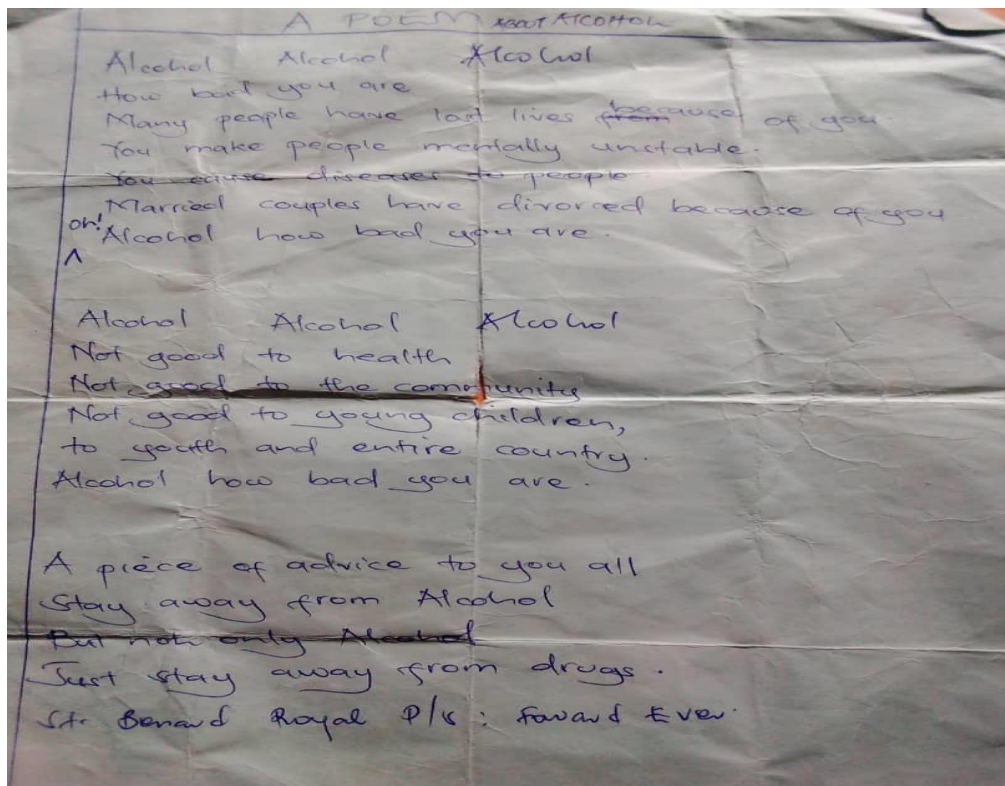 A POEM ABOUT ALCOHOL
Alcohol Alcohol Alcohol
How bad you are
Many people have lost lives because of you
You make people mentally unstable.
You cause diseases to people.
Married couples have divorced because of you
oh! Alcohol how bad you are.
Alcohol Alcohol Alcohol
Not good to health
Not good to the community
Not good to young children,
to youth and entire country.
Alcohol how bad you are.
A piece of advice to you all
Stay away from Alcohol
But not only Alcohol
Just stay away from drugs.
St. Benard Royal P/s: Foward Ever.